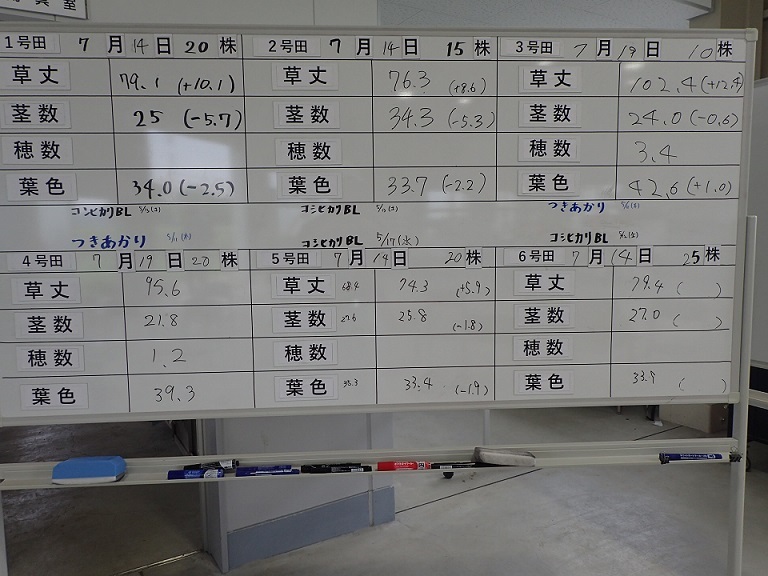 真室
1号田 7月14日 20株
草丈 79.1 (+10.1)
茎数 25 (-5.7)
穂数
葉色 34.0 (-2.5)
コシヒカリBL
2号田 7月14日 15株
草丈 76.3 (+8.6)
茎数 34.3 (-5.3)
穂数
葉色 33.7 (-2.2)
コシヒカリBL
3号田 7月19日 10株
草丈 102.4 (+12.4)
茎数 24.0 (-0.6)
穂数 3.4
葉色 42.6 (+1.0)
つきあかり
つきあかり
4号田 7月19日 20株
草丈 95.6
茎数 21.8
穂数 1.2
葉色 39.3
コシヒカリBL 5/17(水)
5号田 7月14日 20株
草丈 68.4 74.3 (+5.9)
茎数 27.6 25.8 (-1.8)
穂数
葉色 35.3 33.4 (-1.9)
コシヒカリBL
6号田 7月14日 25株
草丈 79.4 ( )
茎数 27.0 ( )
穂数
葉色 33.9 ( )